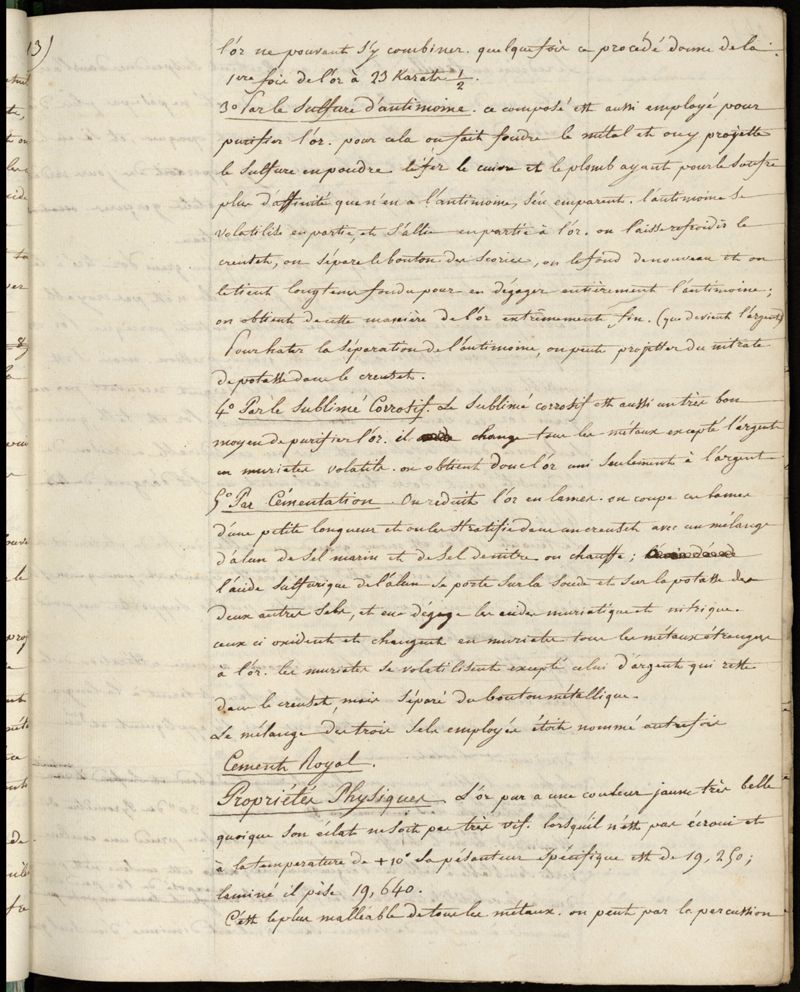 13)
l'or ne pouvant s'y combiner. quelquefois ce procédé donne de la
1ere fois de l'or à 23 Karats 1/2.
3° Par le Sulfure d'antimoine. ce composé est aussi employé pour
purifier l'or. pour cela on fait fondre le métal et on y projette
le sulfure en poudre le fer le cuivre et le plomb ayant pour le soufre
plus d'affinité que n'en a l'antimoine, s'en emparent. l'antimoine se
volatilise en partie, et s'allie en partie à l'or. on laisse refroidir le
creuset, on sépare le bouton des scories, on le fond de nouveau et on
le tient longtems fondu pour en dégager entièrement l'antimoine;
on obtient de cette manière de l'or extrêmement fin. (que devient l'argent)
Pour hater la séparation de l'antimoine, on peut projetter du nitrate
de potasse dans le creuset.
4° Par le Sublimé Corrosif. Le sublimé corrosif est aussi un très bon
moyen de purifier l'or. il change tous les métaux excepté l'argent
en muriates volatils. on obtient donc l'or uni seulement à l'argent
5° Par Cémentation. On réduit l'or en lames. on coupe ces lames
d'une petite longueur et on les stratifie dans un creuset avec un mélange
d'alun de sel marin et de sel de nitre on chauffe;
l'acide sulfurique de l'alun se porte sur la soude et sur la potasse des
deux autres sels, et en dégage les acides muriatique et nitrique.
ceux ci oxident et changent en muriates tous les métaux étrangers
à l'or. les muriates se volatilisent excepté celui d'argent qui reste
dans le creuset, mais séparé du bouton métallique.
Le mélange des trois sels employés étoit nommé autrefois
Cement Royal.
Propriétés Physiques. L'or pur a une couleur jaune très belle
quoique son éclat ne soit pas très vif. lorsqu'il n'est pas écroui et
à la température de +10° sa pésanteur spécifique est de 19,250;
laminé il pèse 19,640.
C'est le plus malléable de tous les métaux. on peut par la percussion